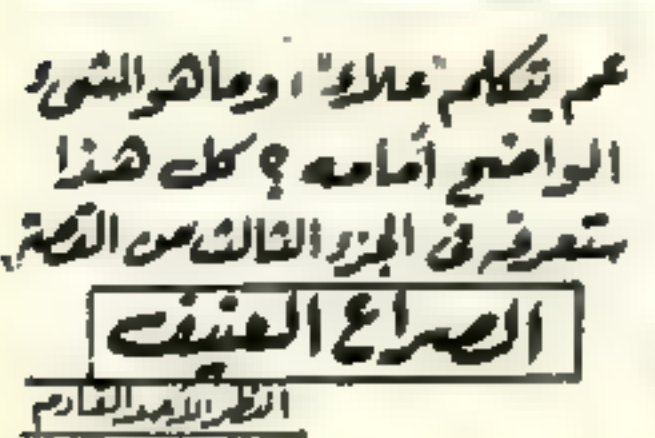 عم يتكلم "علاء"، وما هو الشيء
الواضح أمامه ؟ كل هذا
ستعرفه في الجزء الثالث من القصة.
الصراع العنيف
انتظر العدد القادم